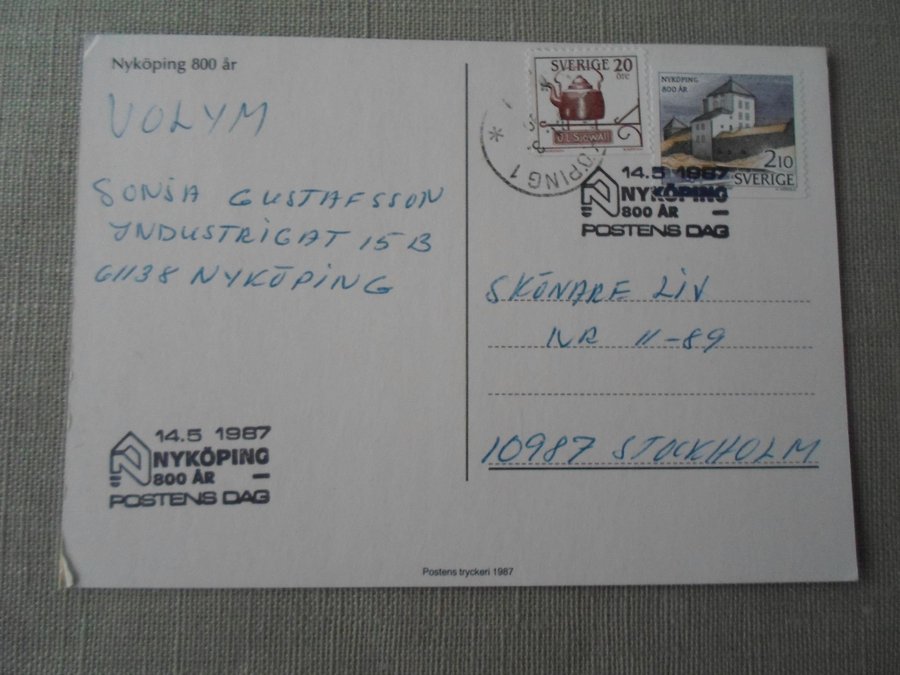 Nyköping 800 år
VOLYM
SONJA GUSTAFSSON
INDUSTRIGAT 15 B
61138 NYKÖPING
14.5 1987
NYKÖPING
800 ÅR
POSTENS DAG
SVERIGE 20
ÖRE
PING 1
NYKÖPING
800 ÅR
2 10
SVERIGE
14.5 1987
NYKÖPING
800 ÅR
POSTENS DAG
SKÖNARE LIV
NR 11-89
10987 STOCKHOLM
Postens tryckeri 1987